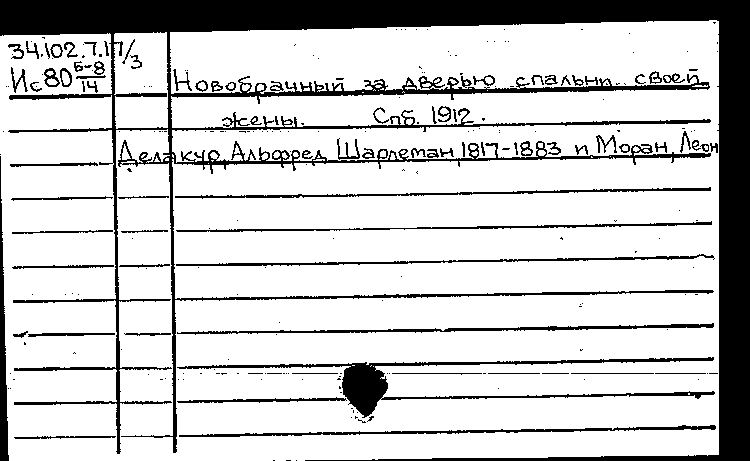 34.102.7.17/3
Ис80 Б-8/14 Новобрачный за дверью спальни своей
жены. Спб, 1912.
Делакур, Альфред Шарлеман, 1817-1883 и Моран, Леон